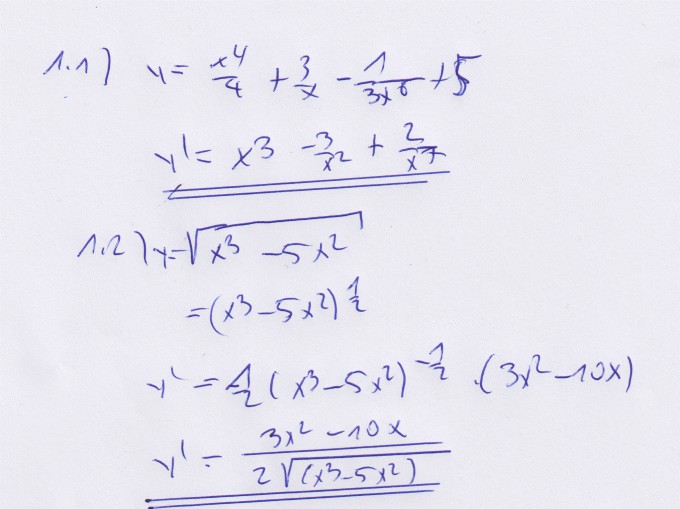 1.1) y = x⁴/4 + 3/x - 1/(3x⁶) + 5
y' = x³ - 3/x² + 2/x⁷
1.2) y = √(x³ - 5x²)
= (x³ - 5x²)^(1/2)
y' = 1/2 (x³ - 5x²)^(-1/2) · (3x² - 10x)
y' = (3x² - 10x)/(2√((x³ - 5x²)))